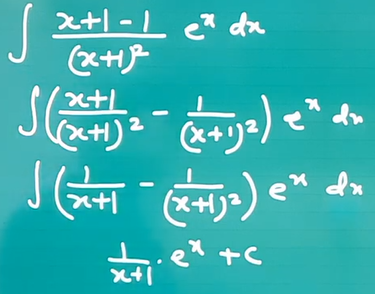 ∫ (x+1-1)/(x+1)² eˣ dx
∫((x+1)/(x+1)² - 1/(x+1)²) eˣ dx
∫(1/(x+1) - 1/(x+1)²) eˣ dx
1/(x+1) · eˣ + c